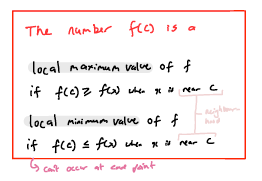 The number f(c) is a
local maximum value of f
if f(c) ≥ f(x) when x is near c
neighbourhood
local minimum value of f
if f(c) ≤ f(x) when x is near c
↳ can't occur at end point